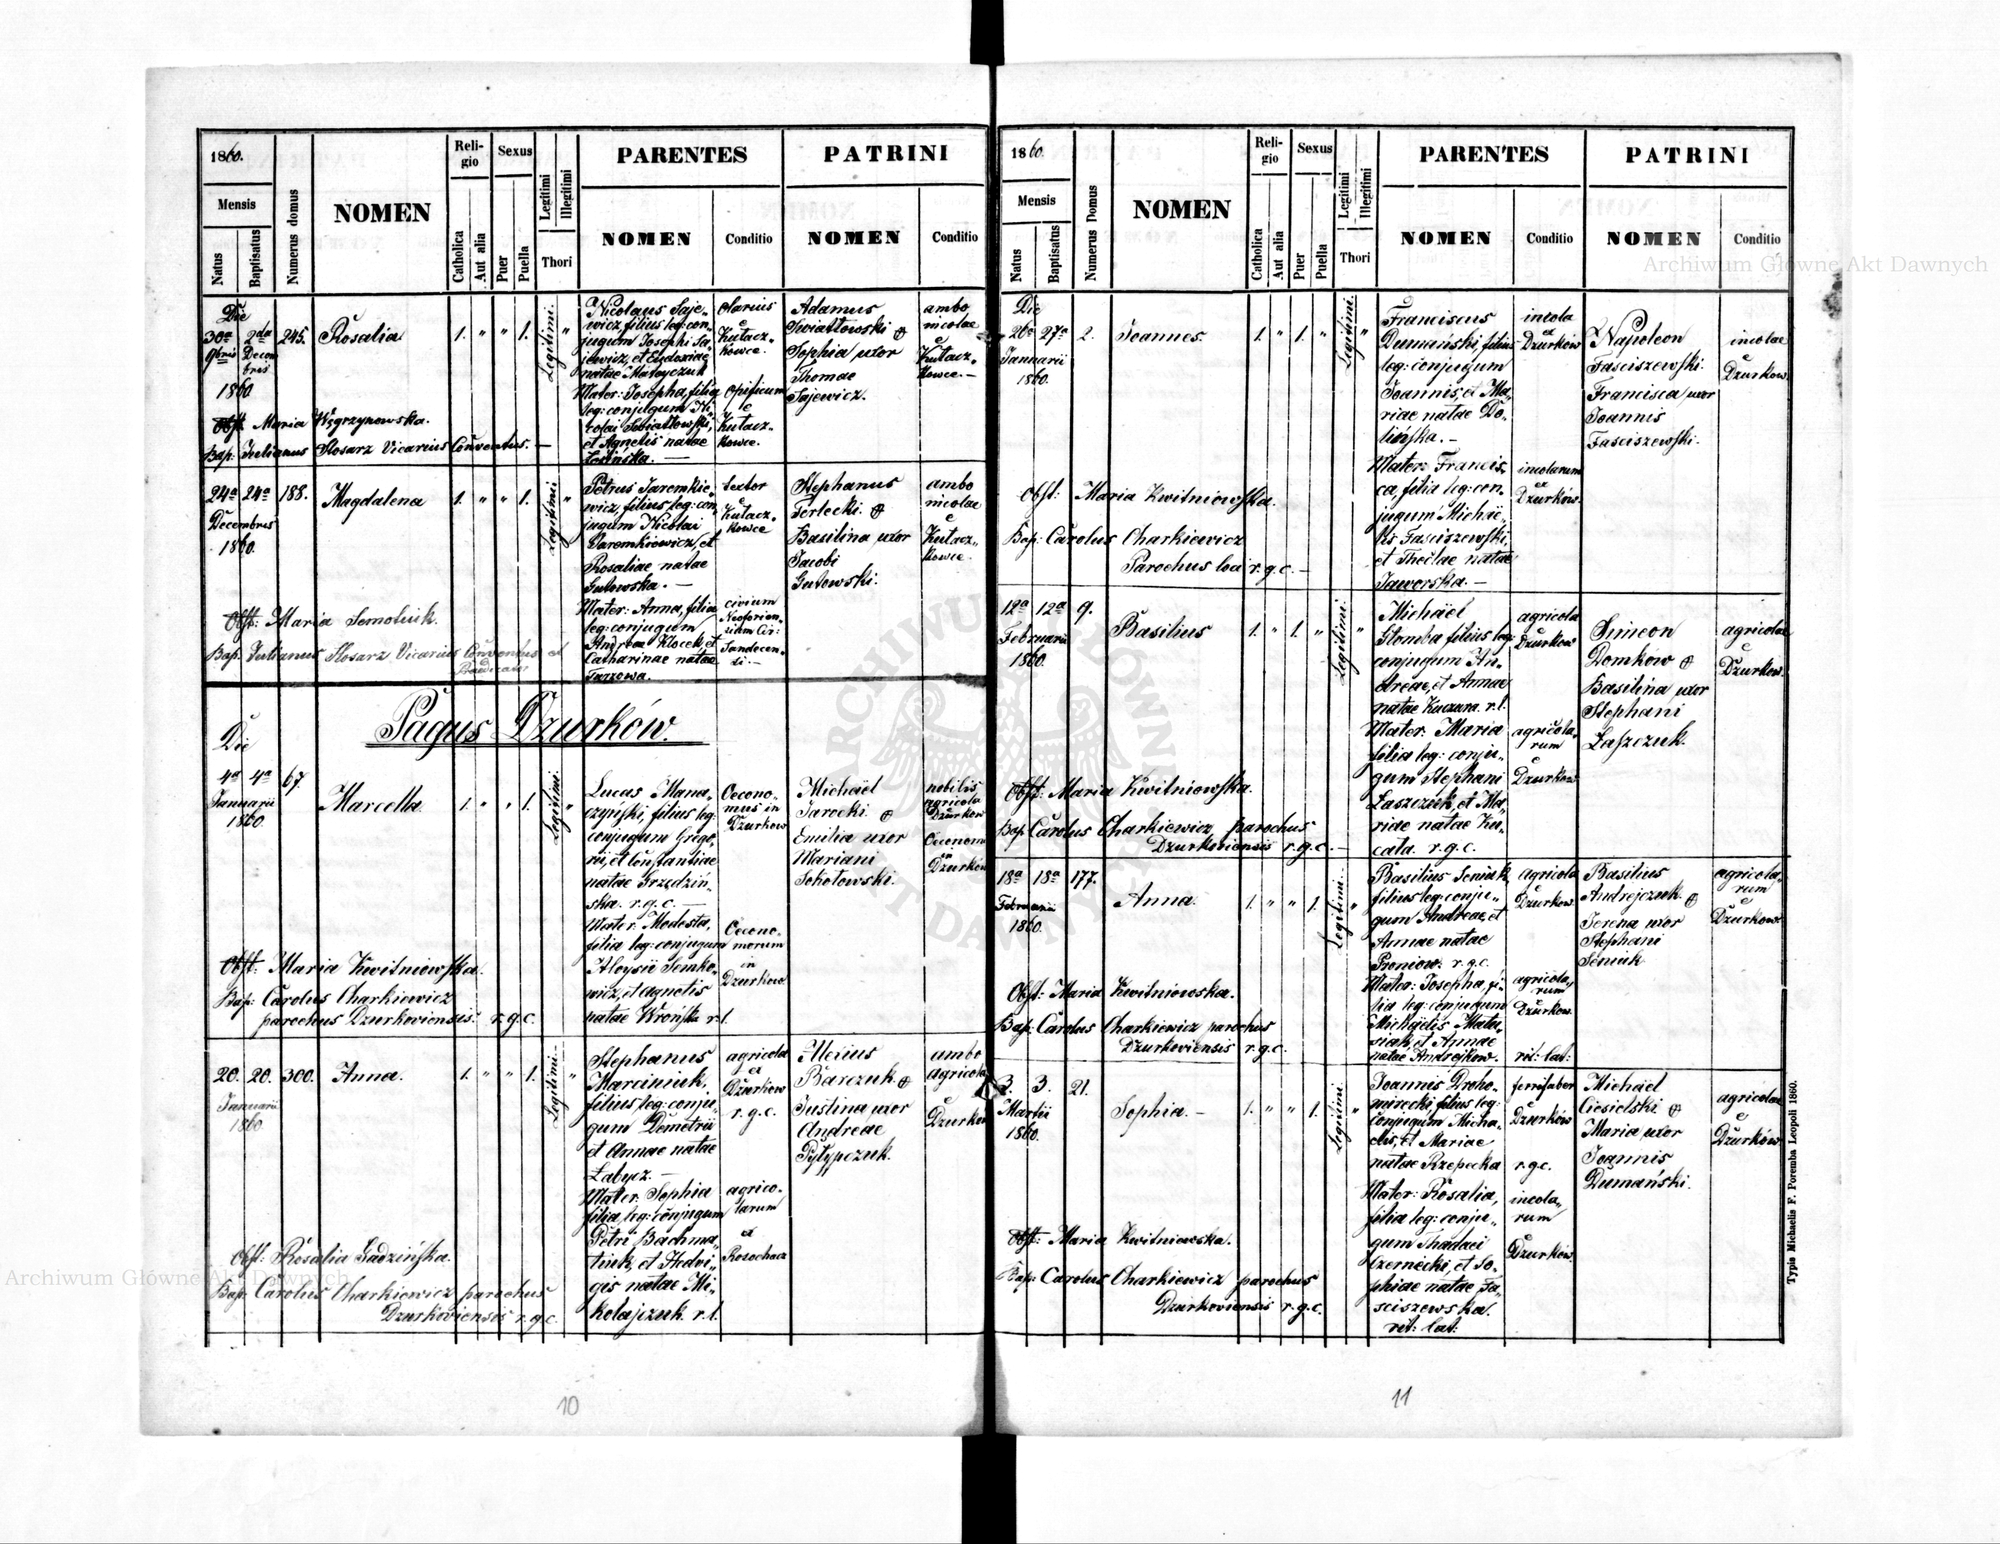 1860.
Mensis
Natus
Baptisatus
Numerus domus
NOMEN
Religio
Catholica
Aut alia
Sexus
Puer
Puella
Legitimi
Illegitimi
Thori
PARENTES
NOMEN
Conditio
PATRINI
NOMEN
Conditio
Die
30a 2da 245. Rosalia 1. " " 1. Legitimi. "
9bris Decembris
1860
Nicolaus Saje-
wicz, filius leg: con-
jugum Josephi Sa-
jewicz, et Eudoxiae
natae Mateyczuk
Mater: Josepha, filia
leg: conjugum Ni-
colai Swiatłowski,
et Agnetis natae
Łosińska. —
olarius
e
Kutacz-
kowce.
opificum
te
Kutacz-
kowce.
Adamus
Swiatłowski &
Sophia uxor
Thomae
Sajewicz.
ambo
incolae
e
Kutacz-
kowce. —
Obst. Maria Węgrzynowska.
Bap: Julianus Slosarz Vicarius Conventus. —
24a 24a 188. Magdalena 1. " " 1. Legitimi "
Decembris
1860.
Petrus Jaremkie-
wicz, filius leg: con-
jugum Nicolai
Jaremkiewicz, et
Rosaliae natae
Gutowska. —
Mater: Anna, filia
leg: conjugum
Andreae Klocek, et
Catharinae natae
Tarzowa.
textor
e
Kutacz-
kowce
civium
Neoforien-
sium Cir:
Sandecen-
si. —
Stephanus
Terlecki. &
Basilina uxor
Jacobi
Gutowski.
ambo
incolae
e
Kutacz-
kowce.
Obst: Maria Semotiuk.
Bap. Julianus Slosarz Vicarius Conventus et
Praedicator
Pagus Dzurków.
Die
4a 4a 67. Marcella. 1. " " 1. Legitimi. "
Januarii
1860.
Lucas Mana-
czyński, filius leg:
conjugum Grego-
rii, et Constantiae
natae Grzędziń-
ska. r.g.c. —
Mater: Modesta,
filia leg: conjugum
Aloysii Semko-
wicz, et Agnetis
natae Wrońska r.l.
Oecono-
mus in
Dzurkow
Oecono-
morum
in
Dzurkow
Michaël
Jarocki. &
Emilia uxor
Mariani
Sokołowski.
nobilis
agricola
Dzurkow
Oeconom
in
Dzurków
Obst: Maria Kwitniowska.
Bap: Carolus Charkiewicz
parochus Dzurkoviensis. r.g.c.
20. 20. 300. Anna. 1. " " 1. Legitimi. — "
Januarii
1860
Stephanus
Marciniuk,
filius leg: conju-
gum Demetrii
et Annae natae
Łabycz. —
Mater: Sophia
filia leg: conjugum
Petri Bachma-
tiuk, et Hedvi-
gis natae Mi-
kołajczuk. r.l.
agricola
ex
Dzurkow
r.g.c.
agrico-
larum
ex
Rosochacz
Alexius
Barczuk. &
Justina uxor
Andreae
Pyłypczuk.
ambo
agricol
e
Dzurkow
Obst: Rosalia Gadzińska.
Bap: Carolus Charkiewicz parochus
Dzurkoviensis r.g.c.
10
1860.
Mensis
Natus
Baptisatus
Numerus Domus
NOMEN
Religio
Catholica
Aut alia
Sexus
Puer
Puella
Legitimi
Illegitimi
Thori
PARENTES
NOMEN
Conditio
PATRINI
NOMEN
Conditio
Die
26a 27a 2. Joannes. 1. " 1. " Legitimi. "
Januarii
1860.
Franciscus
Dumański, filius
leg: conjugum
Joannis, et Ma-
riae natae Do-
lińska. —
Mater: Francis-
ca, filia leg: con-
jugum Michaë-
lis Fasciszewski,
et Theclae natae
Jaworska. —
incola
ex
Dzurków
incolarum
ex
Dzurków.
Napoleon
Fasciszewski.
Francisca uxor
Joannis
Fasciszewski.
incolae
e
Dzurkow.
Obst: Maria Kwitniowska.
Bap: Carolus Charkiewicz
Parochus loci r.g.c. —
12a 12a 9. Basilius 1. " 1. " Legitimi. "
Februarii
1860.
Michaël
Głomba filius leg:
conjugum An-
dreae, et Annae
natae Kuczura. r.l.
Mater: Maria
filia leg: conju-
gum Stephani
Łaszczuk, et Ma-
riae natae Ku-
cała. r.g.c.
agricola
Dzurkow
agricola-
rum
Dzurkow
Simeon
Domków &
Basilina uxor
Stephani
Łaszczuk.
agricolae
e
Dzurkow.
Obst: Maria Kwitniowska.
Bap: Carolus Charkiewicz parochus
Dzurkoviensis r.g.c. —
18a 18a 177. Anna. 1. " " 1. Legitimi. "
Februarii
1860.
Basilius Seniuk
filius leg: conju-
gum Andreae, et
Annae natae
Proniow. r.g.c.
Mater: Josepha, fi-
lia leg: conjugum
Michaëlis Matu-
siak, et Annae
natae Andrejkow.
agricola
Dzurkow.
agricola-
rum
Dzurkow.
rit: lat:
Basilius
Andrejczuk. &
Terena uxor
Stephani
Seniuk
agricola-
rum
e
Dzurkow.
Obst: Maria Kwitniowska.
Bap: Carolus Charkiewicz parochus
Dzurkoviensis r.g.c.
3. 3. 21. Sophia. — 1. " " 1. Legitimi. "
Martii
1860.
Joannis Droho-
mirecki, filius leg:
conjugum Micha-
elis, et Mariae
natae Rzepecka
Mater: Rosalia,
filia leg: conju-
gum Thadaei
Czernecki, et So-
phiae natae Fa-
sciszewska.
rit: lat:
ferrifaber
Dzurków
r.g.c.
incola-
rum
Dzurków.
Michaël
Ciesielski &
Maria uxor
Joannis
Dumański.
agricolae
e
Dzurków
Obst: Maria Kwitniowska.
Bap: Carolus Charkiewicz parochus
Dzurkoviensis r.g.c.
Typis Michaelis F. Poremba Leopoli 1860.
11
Archiwum Główne Akt Dawnych
Archiwum Główne Akt Dawnych
ARCHIWUM GŁÓWNE AKT DAWNYCH